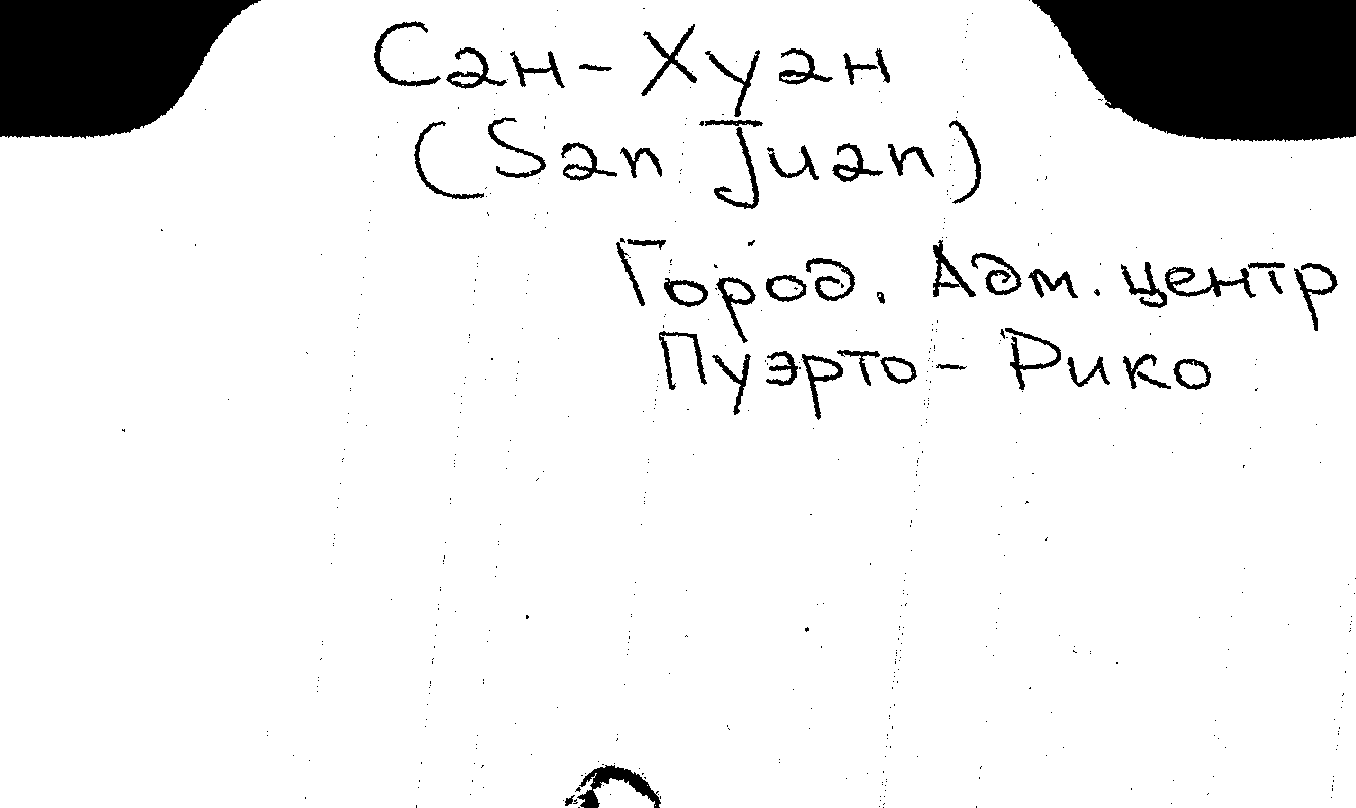 Сан-Хуан
(San Juan)
Город. Адм. центр
Пуэрто-Рико